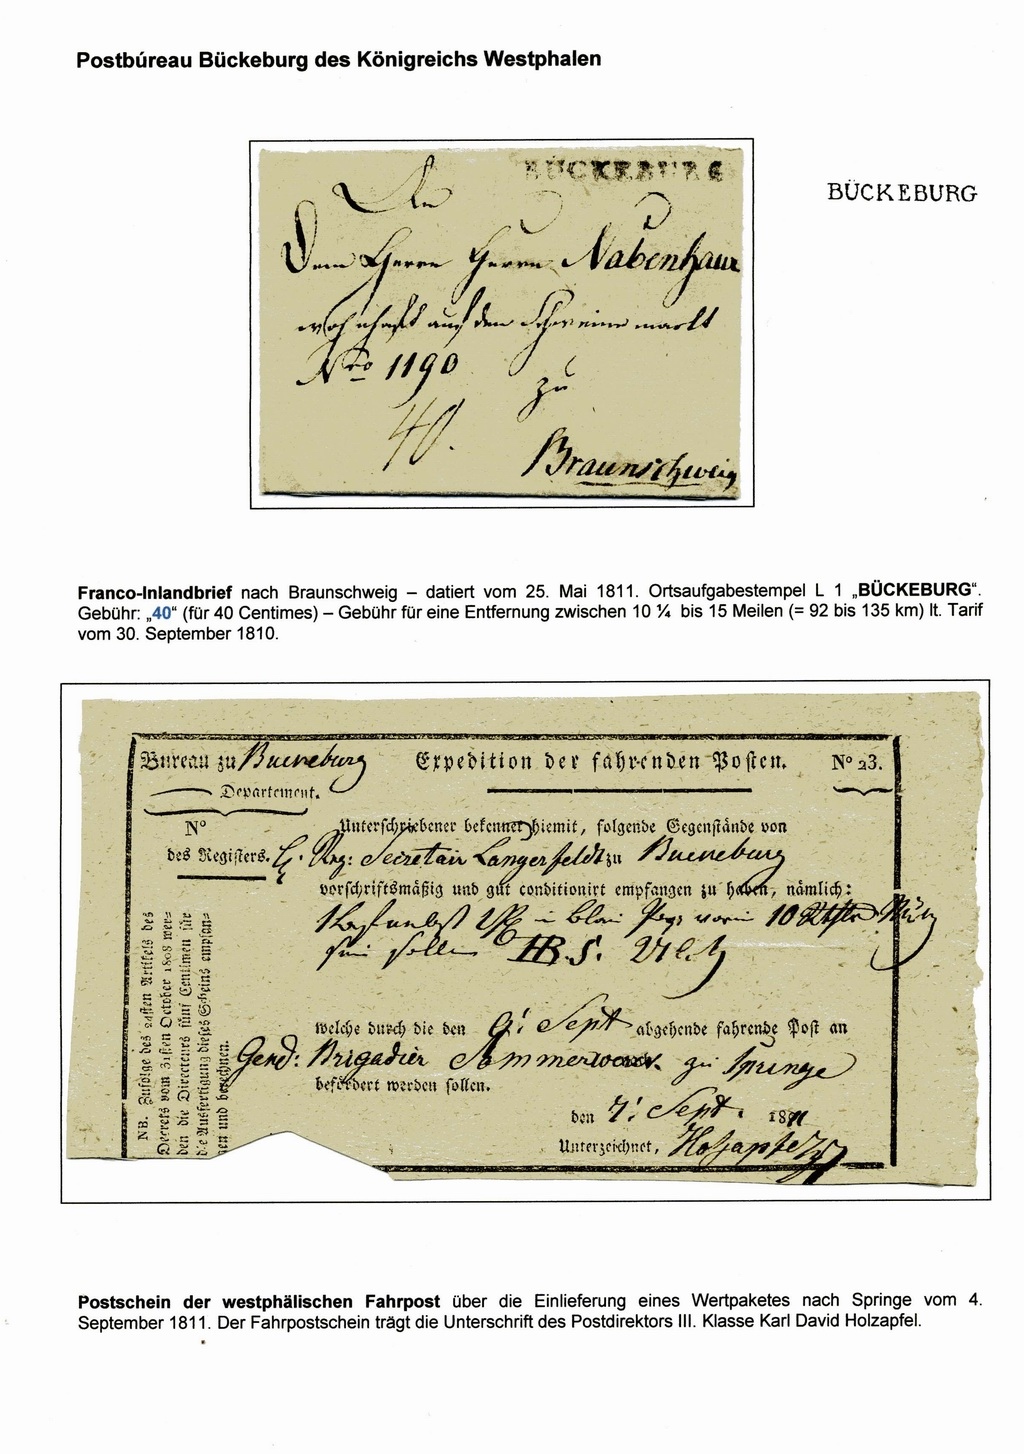 Postbúreau Bückeburg des Königreichs Westphalen
BÜCKEBURG
BÜCKEBURG
An
Dem Herrn Herrn Nabenhaur
wohnhaft auf den Schweinemarkt
Nro 1190
zu
40.
Braunschweig
Franco-Inlandbrief nach Braunschweig – datiert vom 25. Mai 1811. Ortsaufgabestempel L 1 „BÜCKEBURG“.
Gebühr: „40“ (für 40 Centimes) – Gebühr für eine Entfernung zwischen 10 ¼ bis 15 Meilen (= 92 bis 135 km) lt. Tarif
vom 30. September 1810.
Bureau zu Bueckeburg Expedition der fahrenden Posten. No 23.
Departement.
No
des Registers.
Unterschriebener bekennet hiemit, folgende Gegenstände von
Reg: Secretair Langerfeldt zu Bueckeburg
vorschriftsmäßig und gut conditionirt empfangen zu haben, nämlich:
10
sein sollen
welche durch die den 9! Sept abgehende fahrende Post an
Gend: Brigadier zu Springe
befördert werden sollen.
den 4! Sept. 1811
Unterzeichnet, Holzapfel
NB. Zufolge des 24sten Artikels des
Decrets vom 31sten October 1808 wer=
den die Directeurs fünf Centimen für
die Ausfertigung dieses Scheins empfan=
gen und berechnen.
Postschein der westphälischen Fahrpost über die Einlieferung eines Wertpaketes nach Springe vom 4.
September 1811. Der Fahrpostschein trägt die Unterschrift des Postdirektors III. Klasse Karl David Holzapfel.